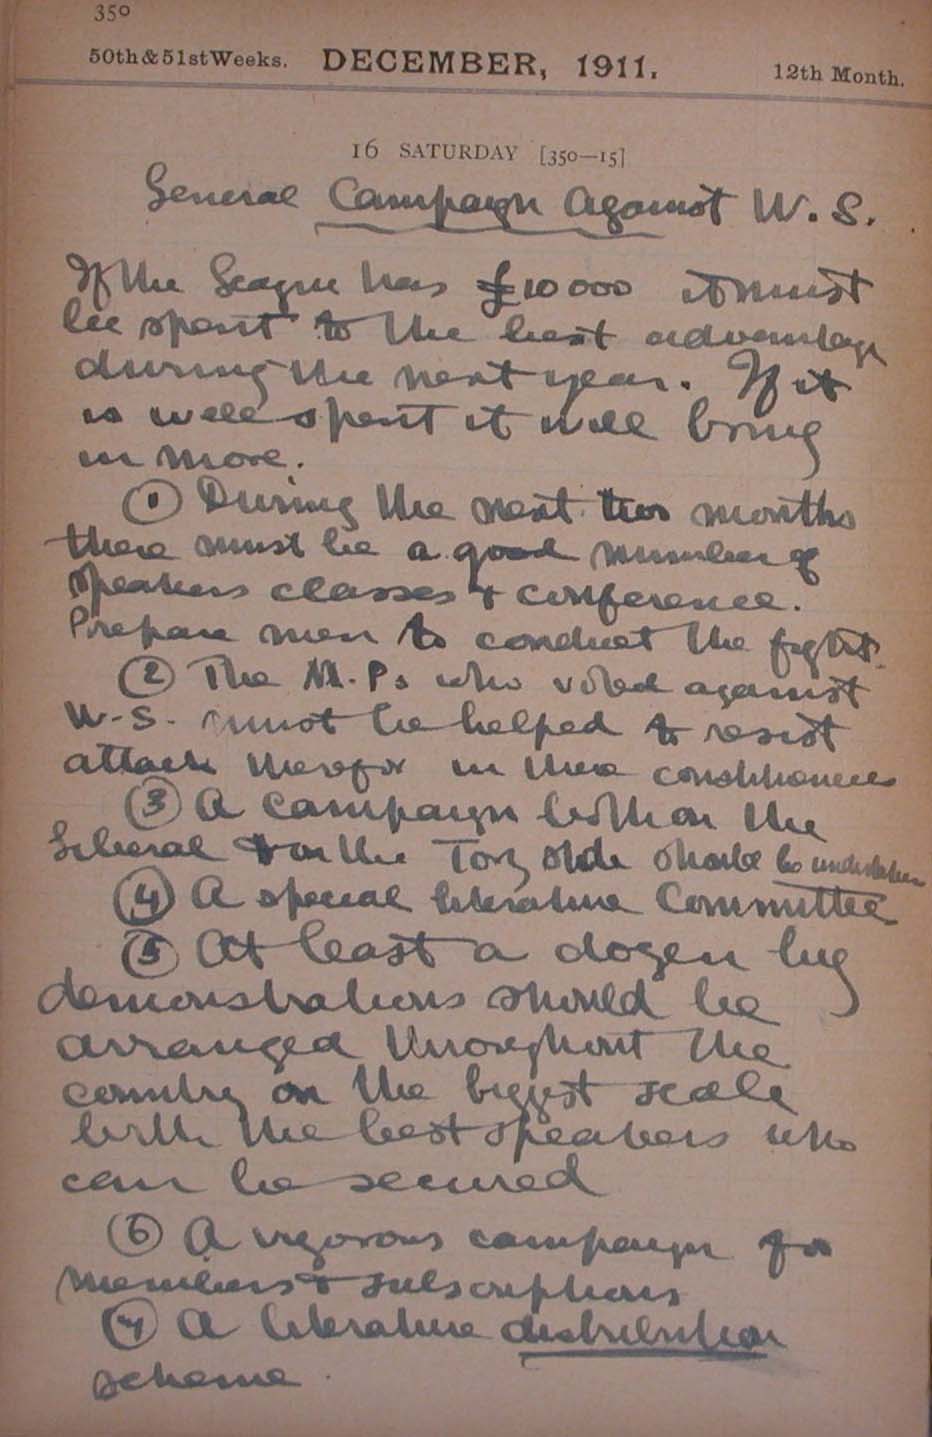 350
50th & 51st Weeks. DECEMBER, 1911. 12th Month.
16 SATURDAY [350—15]
General Campaign Against W. S.
If the League has £10000 it must
be spent to the best advantage
during the next year. If it
is well spent it will bring
in more.
(1) During the next two months
there must be a good number of
speakers classes & conference.
Prepare men to conduct the fight.
(2) The M.Ps who voted against
W.S. must be helped to resist
attack in their constituencies
(3) A campaign both on the
Liberal & on the Tory side should be undertaken
(4) A special literature Committee
(5) At least a dozen big
demonstrations should be
arranged throughout the
country on the biggest scale
with the best speakers who
can be secured
(6) A vigorous campaign for
members & subscriptions
(7) A literature distribution
scheme.